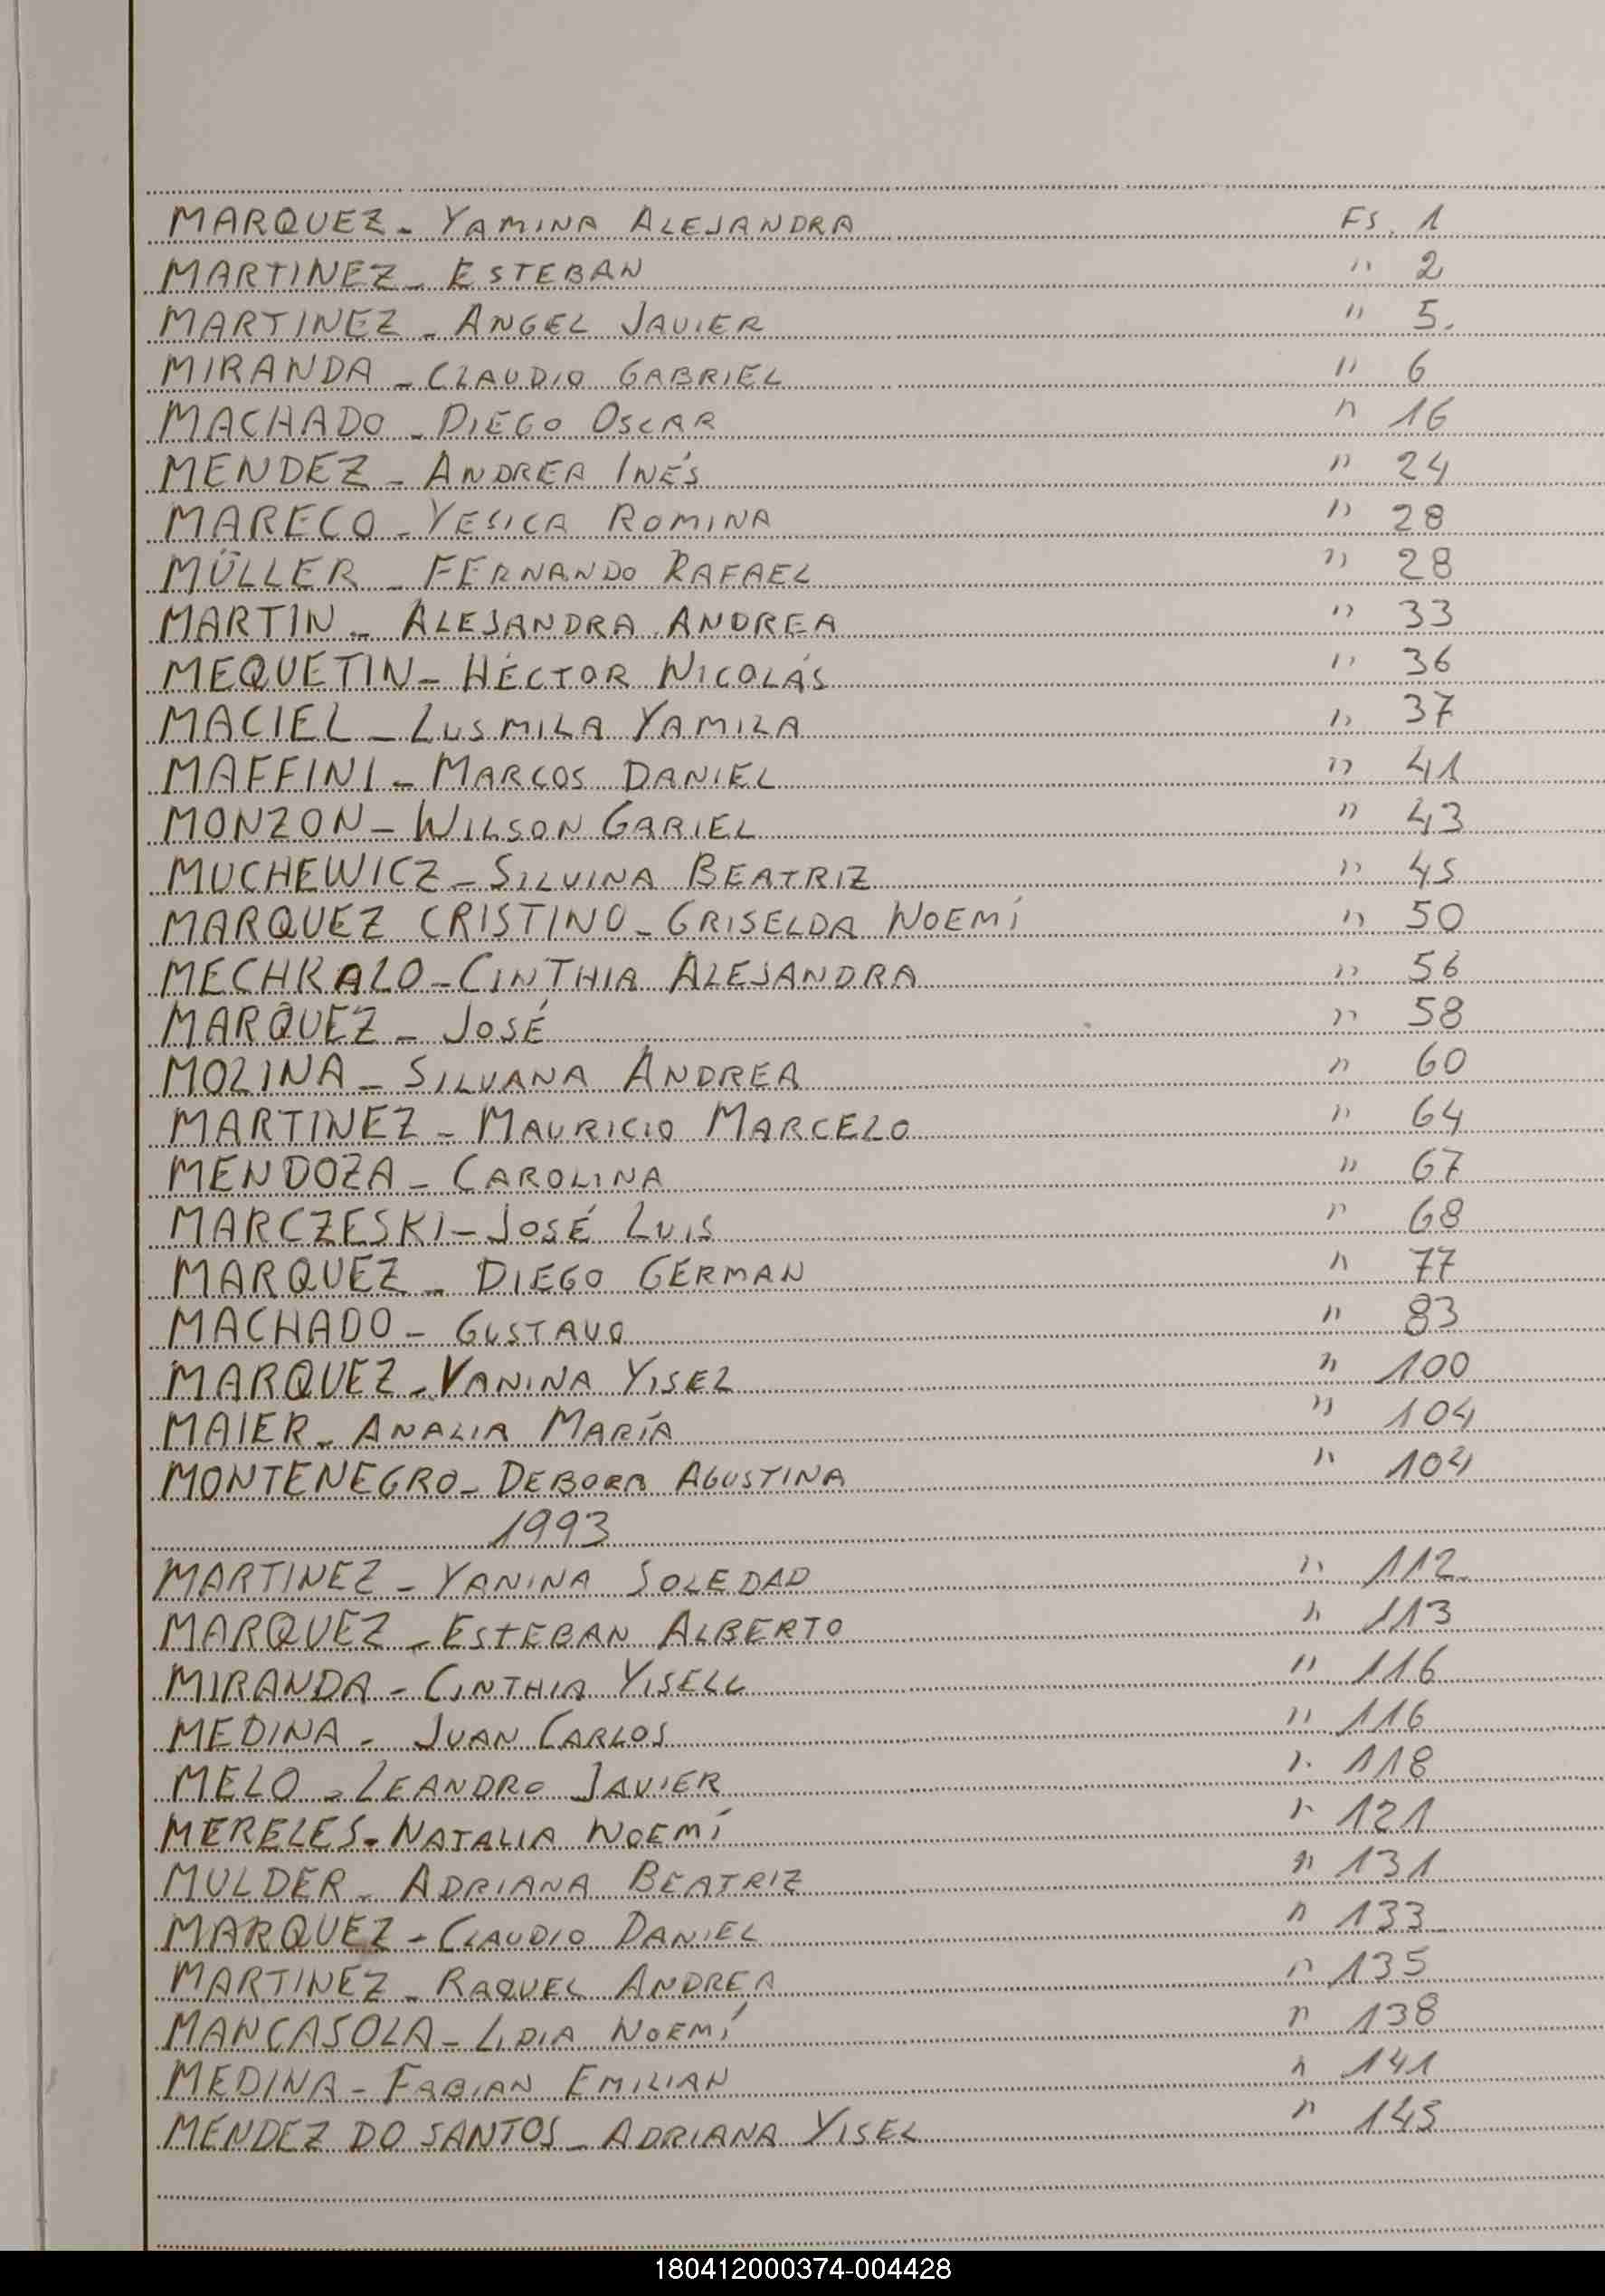 MARQUEZ - YAMINA ALEJANDRA Fs. 1
MARTINEZ - ESTEBAN " 2
MARTINEZ - ANGEL JAVIER " 5.
MIRANDA - CLAUDIO GABRIEL " 6
MACHADO - DIEGO OSCAR " 16
MENDEZ - ANDREA INÉS " 24
MARECO - YESICA ROMINA " 28
MÜLLER - FERNANDO RAFAEL " 28
MARTIN - ALEJANDRA ANDREA " 33
MEQUETIN - HÉCTOR NICOLÁS " 36
MACIEL - LUSMILA YAMILA " 37
MAFFINI - MARCOS DANIEL " 41
MONZON - WILSON GARIEL " 43
MUCHEWICZ - SILVINA BEATRIZ " 45
MARQUEZ CRISTINO - GRISELDA NOEMÍ " 50
MECHRALO - CINTHIA ALEJANDRA " 56
MARQUEZ - JOSÉ " 58
MOLINA - SILVANA ANDREA " 60
MARTINEZ - MAURICIO MARCELO " 64
MENDOZA - CAROLINA " 67
MARCZESKI - JOSÉ LUIS " 68
MARQUEZ - DIEGO GERMAN " 77
MACHADO - GUSTAVO " 83
MARQUEZ - VANINA YISEL " 100
MAIER - ANALIA MARÍA " 104
MONTENEGRO - DEBORA AGUSTINA " 104
1993
MARTINEZ - YANINA SOLEDAD " 112
MARQUEZ - ESTEBAN ALBERTO " 113
MIRANDA - CINTHIA YISELL " 116
MEDINA - JUAN CARLOS " 116
MELO - LEANDRO JAVIER " 118
MERELES - NATALIA NOEMÍ " 121
MULDER - ADRIANA BEATRIZ " 131
MARQUEZ - CLAUDIO DANIEL " 133
MARTINEZ - RAQUEL ANDREA " 135
MANCASOLA - LIDIA NOEMÍ " 138
MEDINA - FABIAN EMILIAN " 141
MENDEZ DO SANTOS - ADRIANA YISEL " 145
180412000374-004428